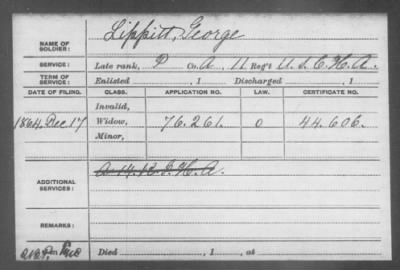 NAME OF SOLDIER: Lippitt, George
SERVICE: Late rank, P Co. A, 11 Reg't U.S.C.H.A.
TERM OF SERVICE: Enlisted , 1 Discharged , 1
DATE OF FILING. CLASS. APPLICATION NO. LAW. CERTIFICATE NO.
Invalid,
1864, Dec 17 Widow, 76.261. 0 44.606.
Minor,
ADDITIONAL SERVICES: A 14. R.I.H.A.
REMARKS:
Died , 1 , at